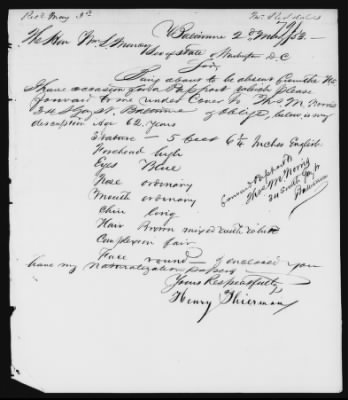 Rec'd May 3rd
Baltimore 2nd May /53
The Hon Wm L Marcy
Sec of State Washington D.C
Sir,
Being about to be absent from the
I have occasion for a Passport which please
forward to me under Cover to Thos M. Norris
34 S Gay St. Baltimore & oblige below is my
description Age 62 years
Stature — 5 feet 6 1/4 Inches English
Forehead high
Eyes Blue
Nose ordinary
Mouth ordinary
Chin long
Hair Brown mixed with white
Complexion fair
Face round — enclosed you
have my Naturalization papers
Yours Respectfully
Henry Thierman
Passport
Thos M Norris
34 South Gay St
Baltimore